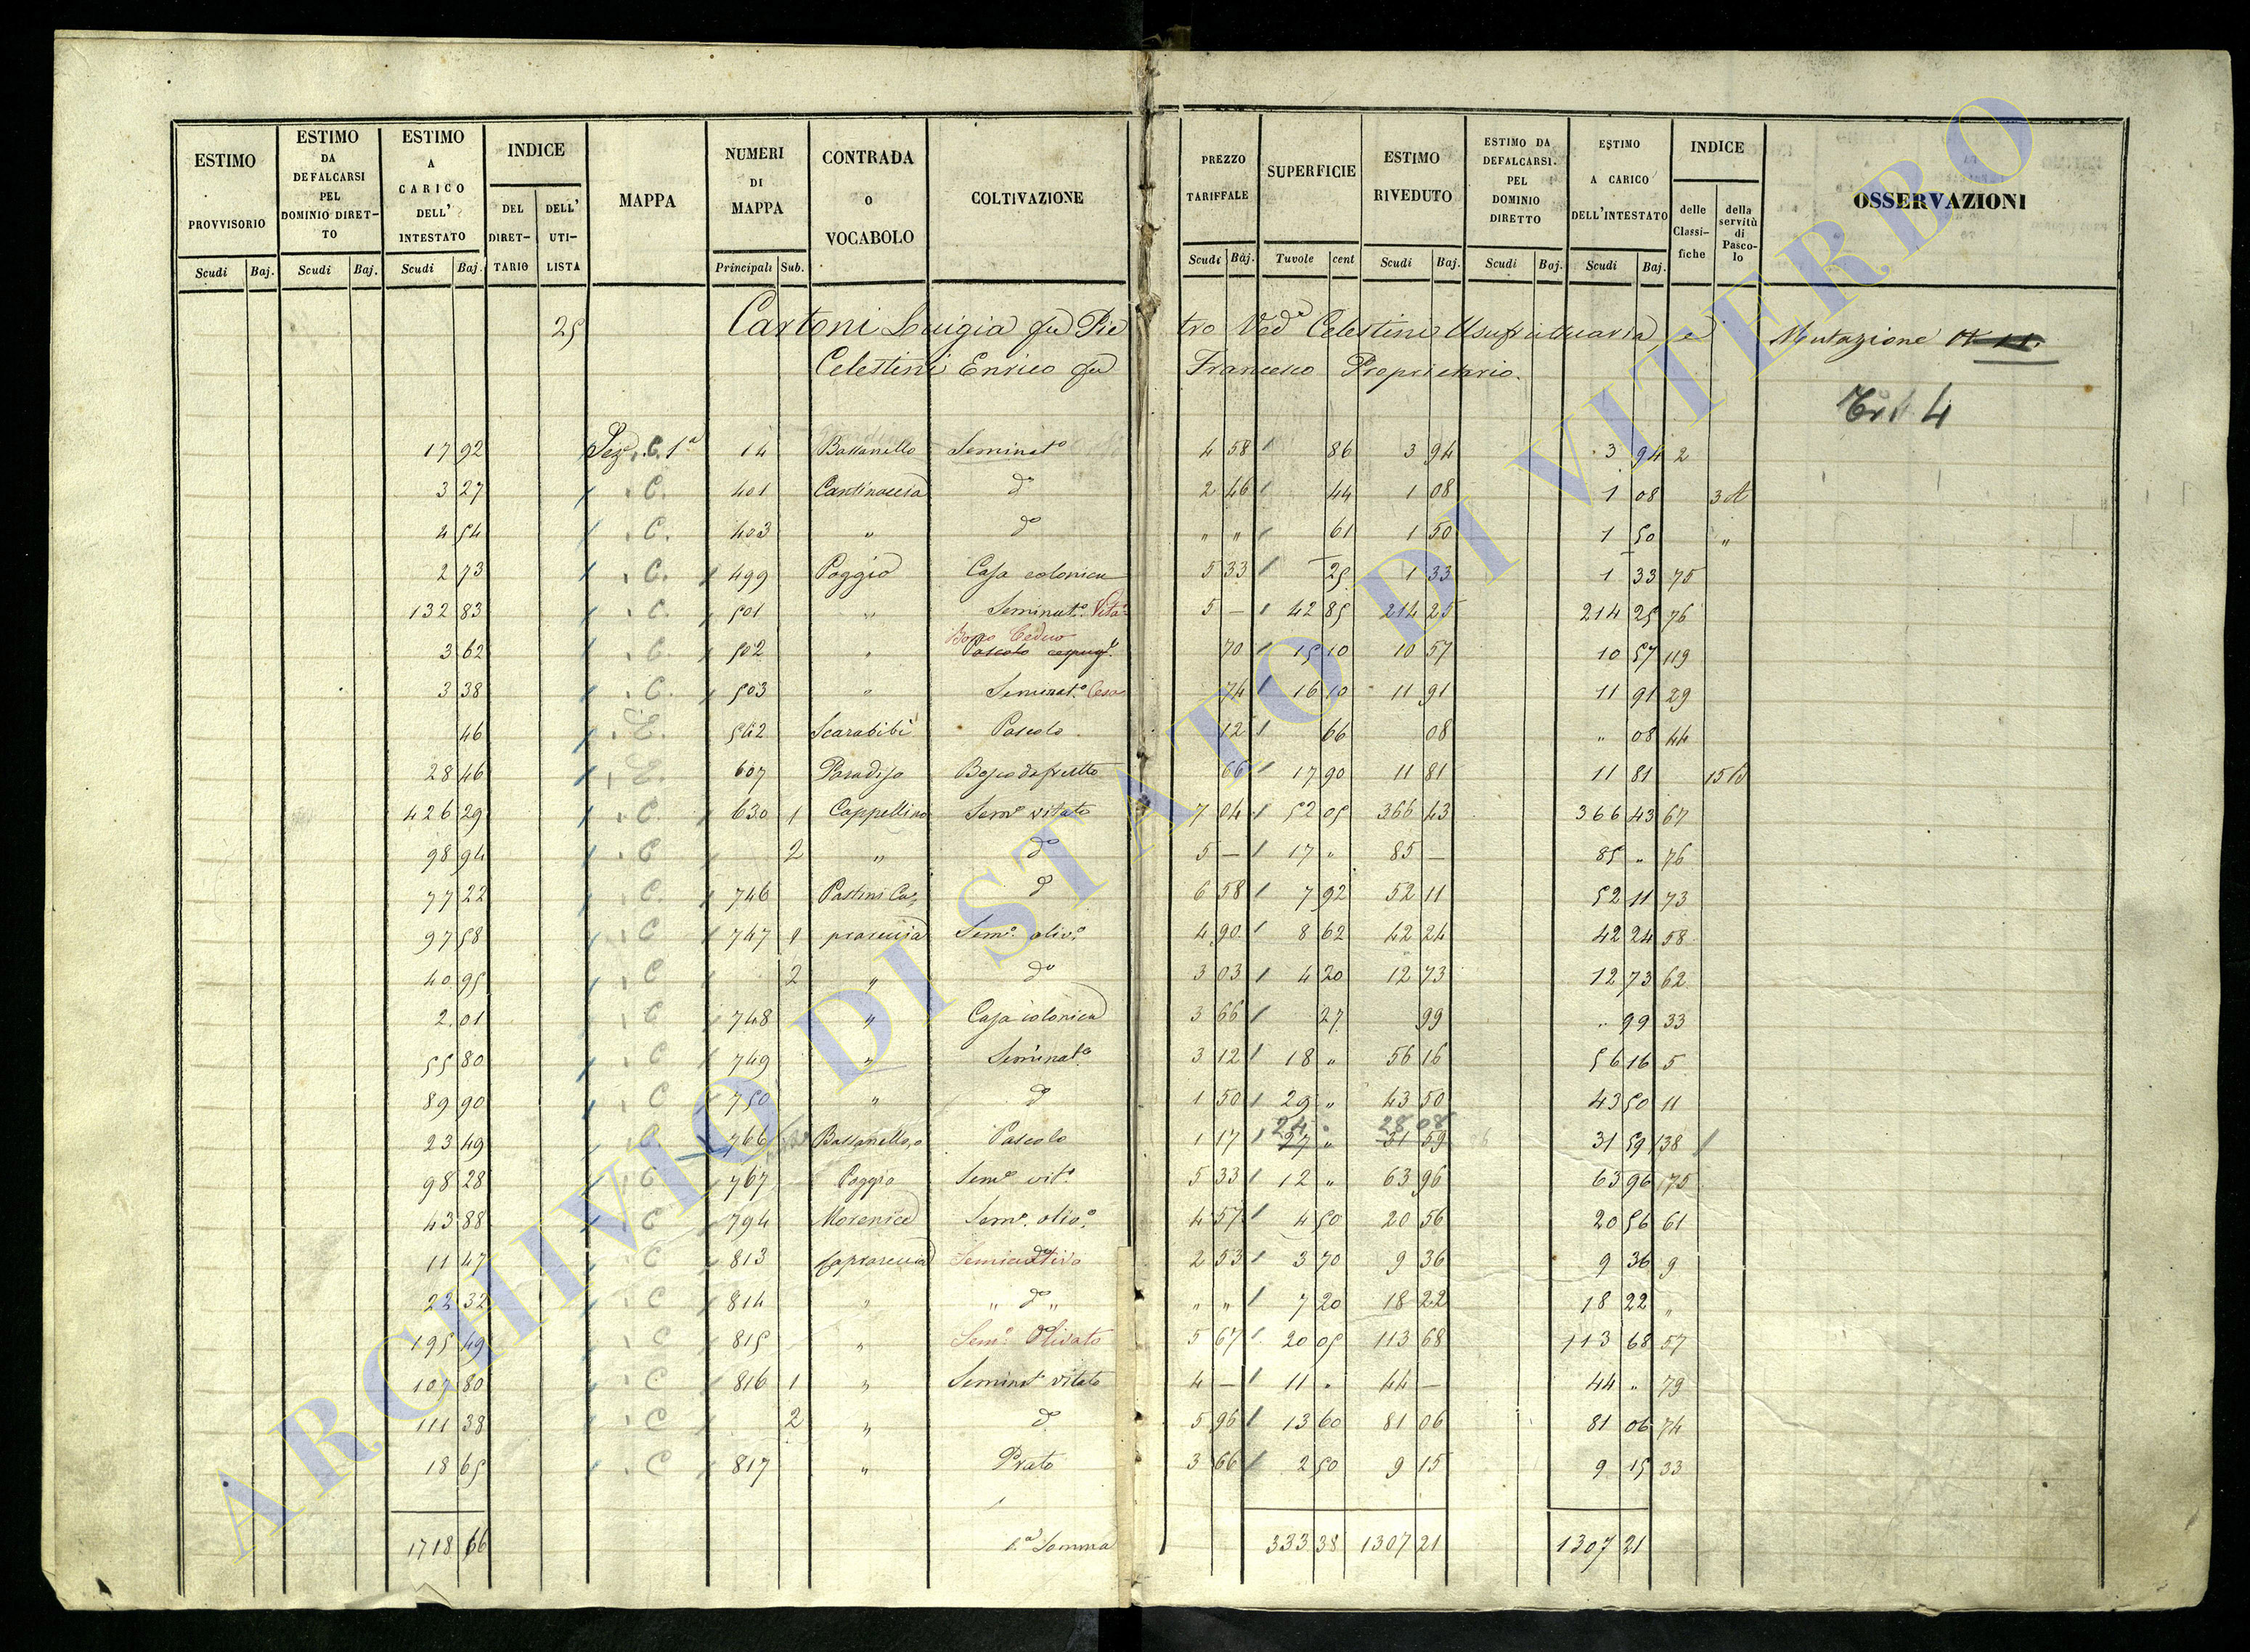 ESTIMO PROVVISORIO | ESTIMO DA DEFALCARSI PEL DOMINIO DIRETTO | ESTIMO A CARICO DELL' INTESTATO | INDICE | MAPPA | NUMERI DI MAPPA | CONTRADA o VOCABOLO | COLTIVAZIONE | PREZZO TARIFFALE | SUPERFICIE | ESTIMO RIVEDUTO | ESTIMO DA DEFALCARSI. PEL DOMINIO DIRETTO | ESTIMO A CARICO DELL'INTESTATO | INDICE | OSSERVAZIONI
DEL DIRETTARIO | DELL' UTILISTA | delle Classifiche | della servitù di Pascolo
Scudi | Baj. | Scudi | Baj. | Scudi | Baj. | Principali | Sub. | Scudi | Baj. | Tavole | cent | Scudi | Baj. | Scudi | Baj. | Scudi | Baj.
25 Cartoni Luigia fu Pietro Ved.a Celestini Usufruttuaria, e Mutazione
Celestini Enrico fu Francesco Proprietario.
4
17 92 | C. 1a | 14 | Bassanello | Seminato | 4 58 | 86 | 3 94 | 3 94 | 2
3 27 | C. | 401 | do | 2 46 | 44 | 1 08 | 1 08 | 3 A
4 54 | C. | 403 | " | do | " " | 61 | 1 50 | 1 50 | "
2 73 | C. | 499 | Poggio | Casa colonica | 5 33 | 25 | 1 33 | 1 33 | 75
132 83 | C. | 501 | " | Seminato. Vitato | 5 – | 42 85 | 214 25 | 214 25 | 76
Bosco Ceduo
3 62 | C. | 502 | " | Pascolo cespug. | 70 | 15 10 | 10 57 | 10 57 | 119
3 38 | C. | 503 | " | Seminato. Cesa | 74 | 16 10 | 11 91 | 11 91 | 29
46 | E. | 562 | Scarabibi | Pascolo | 12 | 66 | 08 | " 08 | 44
28 46 | E. | 607 | Paradiso | Bosco da frutto | 66 | 17 90 | 11 81 | 11 81 | 15
426 29 | C. | 630 | 1 | Cappellino | Semo vitato | 7 04 | 52 05 | 366 43 | 366 43 | 67
98 94 | C | 2 | " | do | 5 – | 17 " | 85 – | 85 " | 76
77 22 | C. | 746 | Pastini Ca= | do | 6 58 | 7 92 | 52 11 | 52 11 | 73
97 58 | C | 747 | 1 | prareccia | Semo. olivo. | 4 90 | 8 62 | 42 24 | 42 24 | 58
40 95 | C | 2 | " | do | 3 03 | 4 20 | 12 73 | 12 73 | 62
2 01 | C | 748 | " | Casa colonica | 3 66 | 27 | 99 | " 99 | 33
55 80 | C | 749 | " | Seminato | 3 12 | 18 " | 56 16 | 56 16 | 5
89 90 | C | 750 | " | do | 1 50 | 29 " | 43 50 | 43 50 | 11
24 " | 28 08
23 49 | C | 766 | Bassanello | Pascolo | 1 17 | 27 " | 31 59 | 31 59 | 138
98 28 | C | 767 | Poggio | Semo vito | 5 33 | 12 " | 63 96 | 63 96 | 75
43 88 | C | 794 | Morenice | Semo. olivo. | 4 57 | 4 50 | 20 56 | 20 56 | 61
11 47 | C | 813 | Caprareccia | do | 2 53 | 3 70 | 9 36 | 9 36 | 9
22 32 | C | 814 | " | " do " | " " | 7 20 | 18 22 | 18 22 | "
195 49 | C | 815 | " | Semo Olivato | 5 67 | 20 05 | 113 68 | 113 68 | 57
107 80 | C | 816 | 1 | " | Seminato vitato | 4 – | 11 " | 44 – | 44 " | 79
111 38 | C | 2 | " | do | 5 96 | 13 60 | 81 06 | 81 06 | 74
18 65 | C | 817 | " | Prato | 3 66 | 2 50 | 9 15 | 9 15 | 33
1718 66 | 1.a Somma | 333 38 | 1307 21 | 1307 21
ARCHIVIO DI STATO DI VITERBO